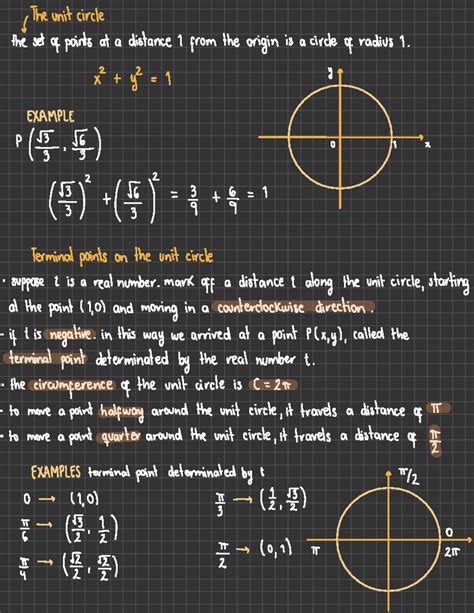 The unit circle
the set of points at a distance 1 from the origin is a circle of radius 1.
x² + y² = 1
EXAMPLE
P (√3/3, √6/3)
y
0 1 x
(√3/3)² + (√6/3)² = 3/9 + 6/9 = 1
Terminal points on the unit circle
· suppose t is a real number. mark off a distance t along the unit circle, starting
at the point (1,0) and moving in a counterclockwise direction.
- if t is negative. in this way we arrived at a point P(x,y), called the
terminal point determined by the real number t.
· the circumference of the unit circle is C = 2π
· to move a point halfway around the unit circle, it travels a distance of π
· to move a point quarter around the unit circle, it travels a distance of π/2
EXAMPLES terminal point determined by t
0 → (1,0)
π/6 → (√3/2, 1/2)
π/4 → (√2/2, √2/2)
π/3 → (1/2, √3/2)
π/2 → (0,1)
π/2
π
0
2π